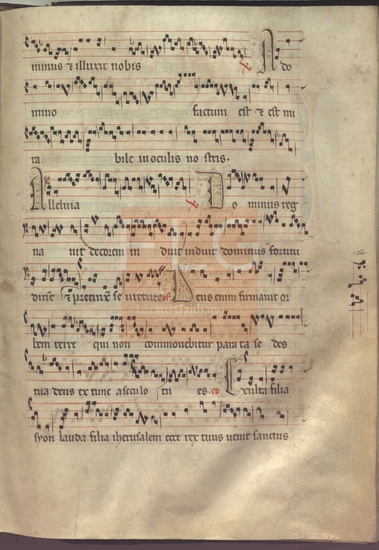 minus & illuxit nobis A do
mino factum est & est mi
ra bile in oculis no stris.
Alleluia Dominus reg
na uit decorem in duit induit dominus fortitu
dine & precinx se uirtute Deus enim firmauit or
bem terre qui non commouebitur para ta se des
tua deus ex tunc a seculo tu es. co Exulta filia
syon lauda filia iherusalem ecce rex tuus uenit sanctus